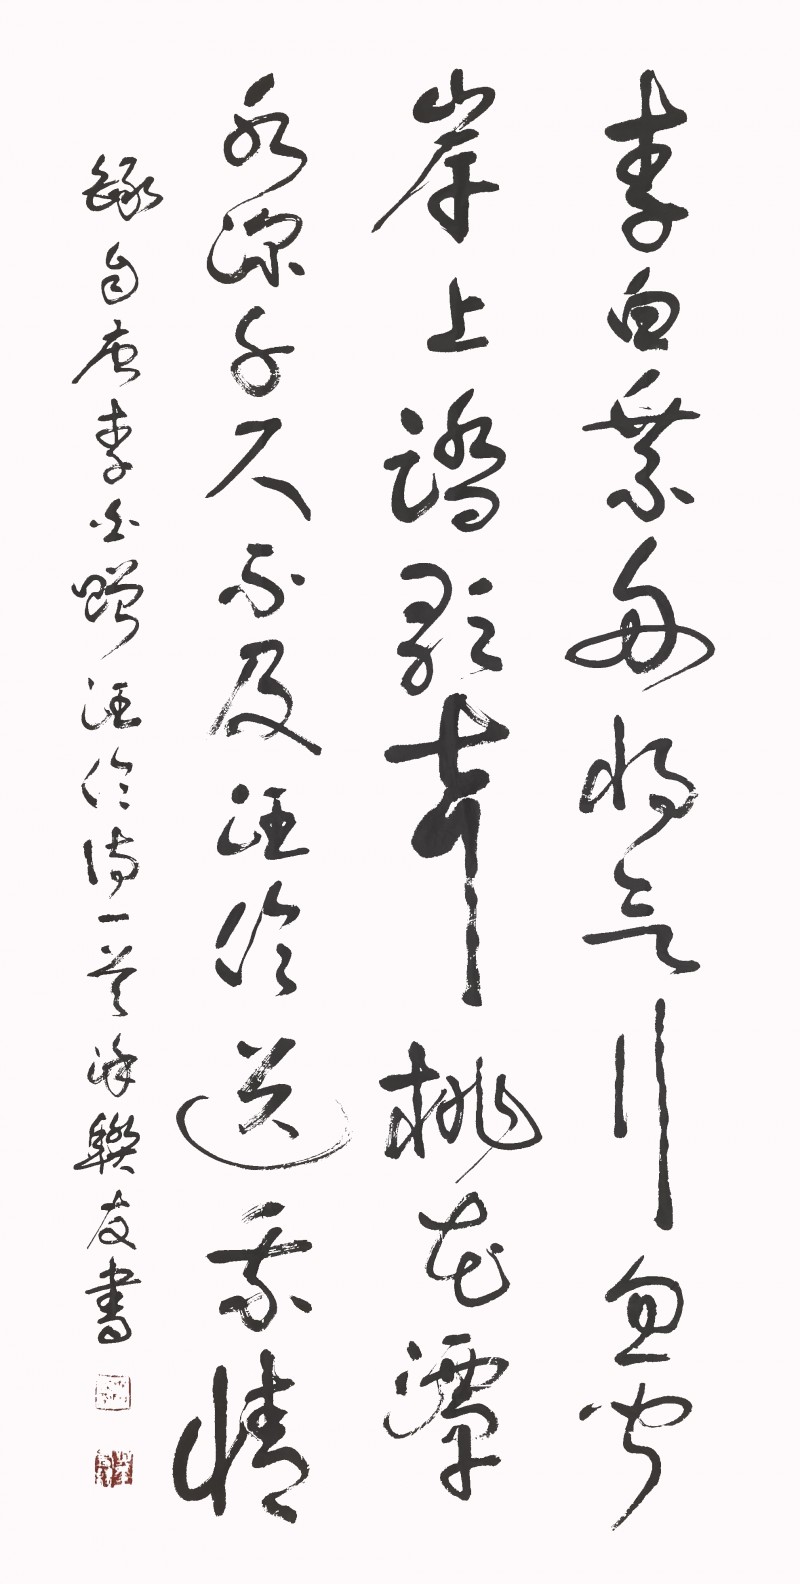 李白乘舟將欲行忽聞
岸上踏歌聲桃花潭
水深千尺不及汪倫送我情
錄自唐李白贈汪倫詩一首聯友書